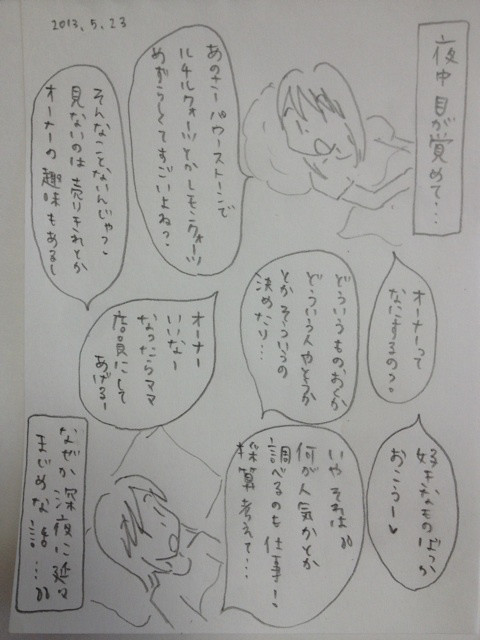 2013.5.23
夜中目が覚めて…
あのさーパワーストーンで
ルチルクォーツとかレモンクォーツ
めずらしくてすごいよねっ。
そんなことないんじゃっ。
見ないのは売りきれとか
オーナーの趣味もあるし
オーナーって
なにするのっ。
どういうものおくか
どういう人やとうか
とかそういうの
決めたり…
オーナー
いいなー
なったらママ
店員にして
あげるー
好きなものばっか
おこうー♥
いやそれは
何が人気かとか
調べるのも仕事!。
採算考えて…
なぜか深夜に
まじめな話…